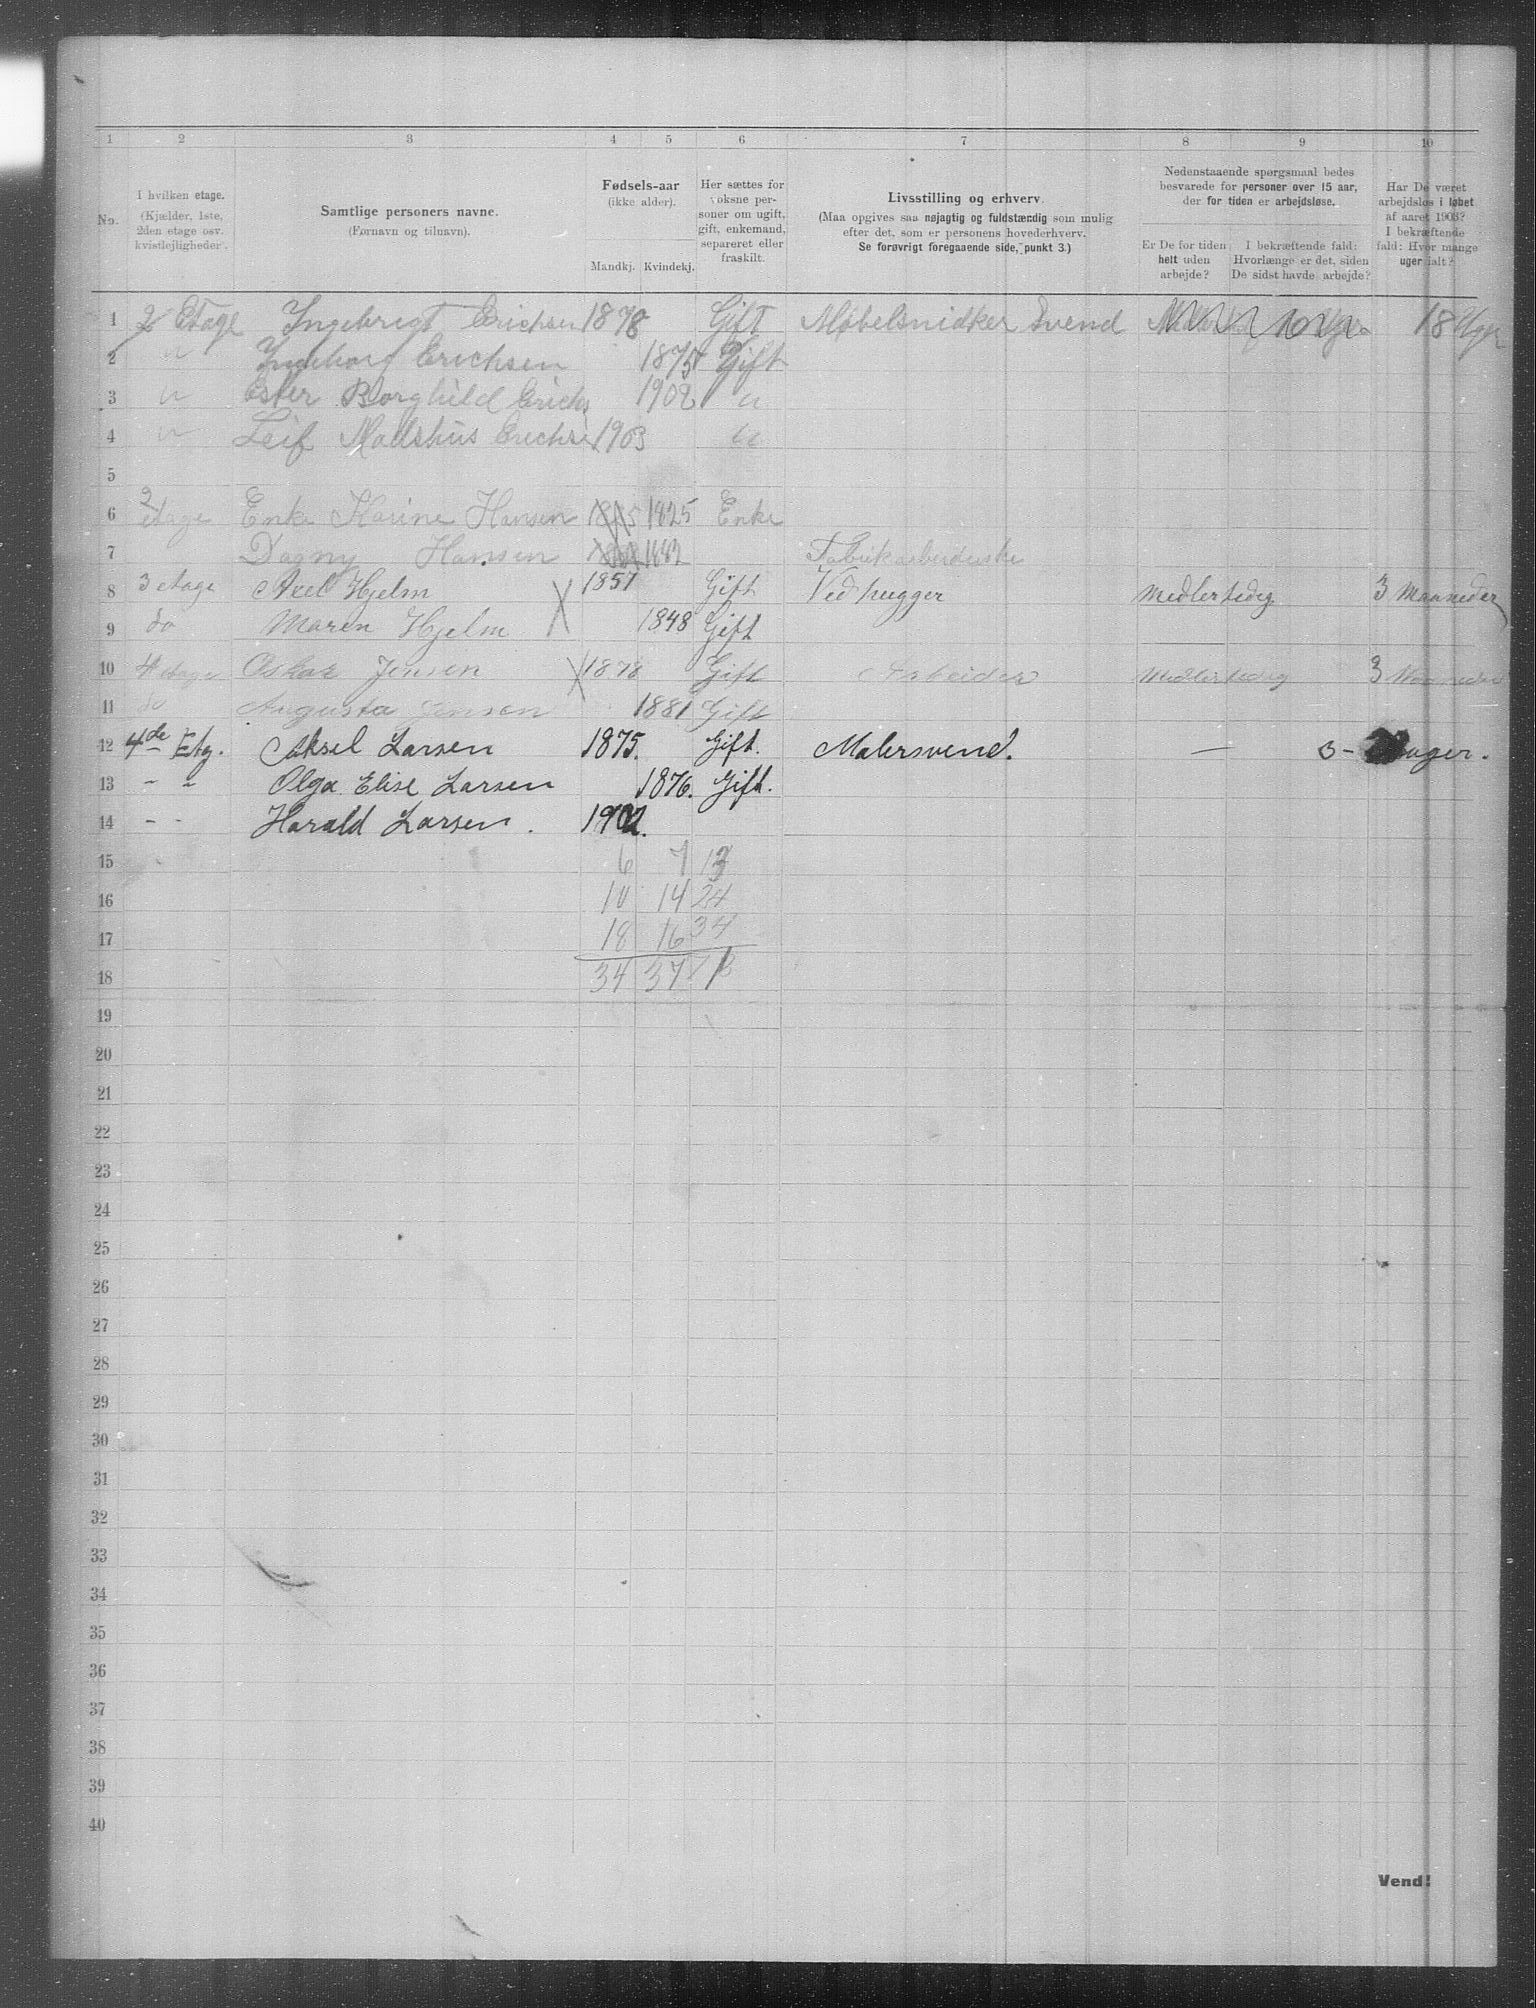 1 2 3 4 5 6 7 8 9 10
No.
I hvilken etage.
(Kjælder, 1ste,
2den etage osv.
kvistlejligheder.
Samtlige personers navne.
(Fornavn og tilnavn).
Fødsels-aar
(ikke alder).
Mandkj. Kvindekj.
Her sættes for
voksne per-
soner om ugift,
gift, enkemand,
separeret eller
fraskilt.
Livsstilling og erhverv.
(Maa opgives saa nøjagtig og fuldstændig som mulig
efter det, som er personens hovederhverv.
Se forøvrigt foregaaende side, punkt 3.)
Nedenstaaende spørgsmaal bedes
besvarede for personer over 15 aar,
der for tiden er arbejdsløse.
Er De for tiden
helt uden
arbejde?
I bekræftende fald:
Hvorlænge er det, siden
De sidst havde arbejde?
Har De været
arbejdsløs i løbet
af aaret 1903?
I bekræftende
fald: Hvor mange
uger ialt?
1 2 Etage Ingebrigt Erichsen 1878 Gift Møbelsnidker Svend 18 Uger
2 " Ingeborg Erichsen 1875 Gift
3 " Ester Borghild Erichs 1902 "
4 " Leif Madshus Erichse 1903 "
5
6 2 etage Enke Karine Hansen 1825 1825 Enke
7 Dagny Hansen 1882 Fabrikarbeiderske
8 3 etage Axel Hjelm 1857 Gift Vedhugger Medlertedig 3 Maaneder
9 do Maren Hjelm X 1848 Gift
10 4 etage Oskar Jensen X 1878 Gift Arbeider Medlertedig 3 Maaneder
11 do Augusta Jensen 1881 Gift
12 4de Etg. Aksel Larsen 1875. Gift. Malersvend. — 3 - uger.
13 - " Olga Elise Larsen 1876. Gift.
14 - - Harald Larsen. 1902.
15 6 7 13
16 10 14 24
17 18 16 34
18 34 37 71
19
20
21
22
23
24
25
26
27
28
29
30
31
32
33
34
35
36
37
38
39
40
Vend!